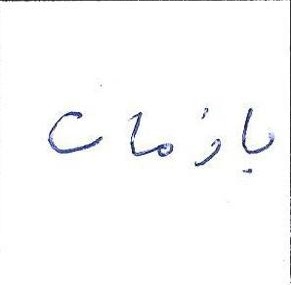 بازماں